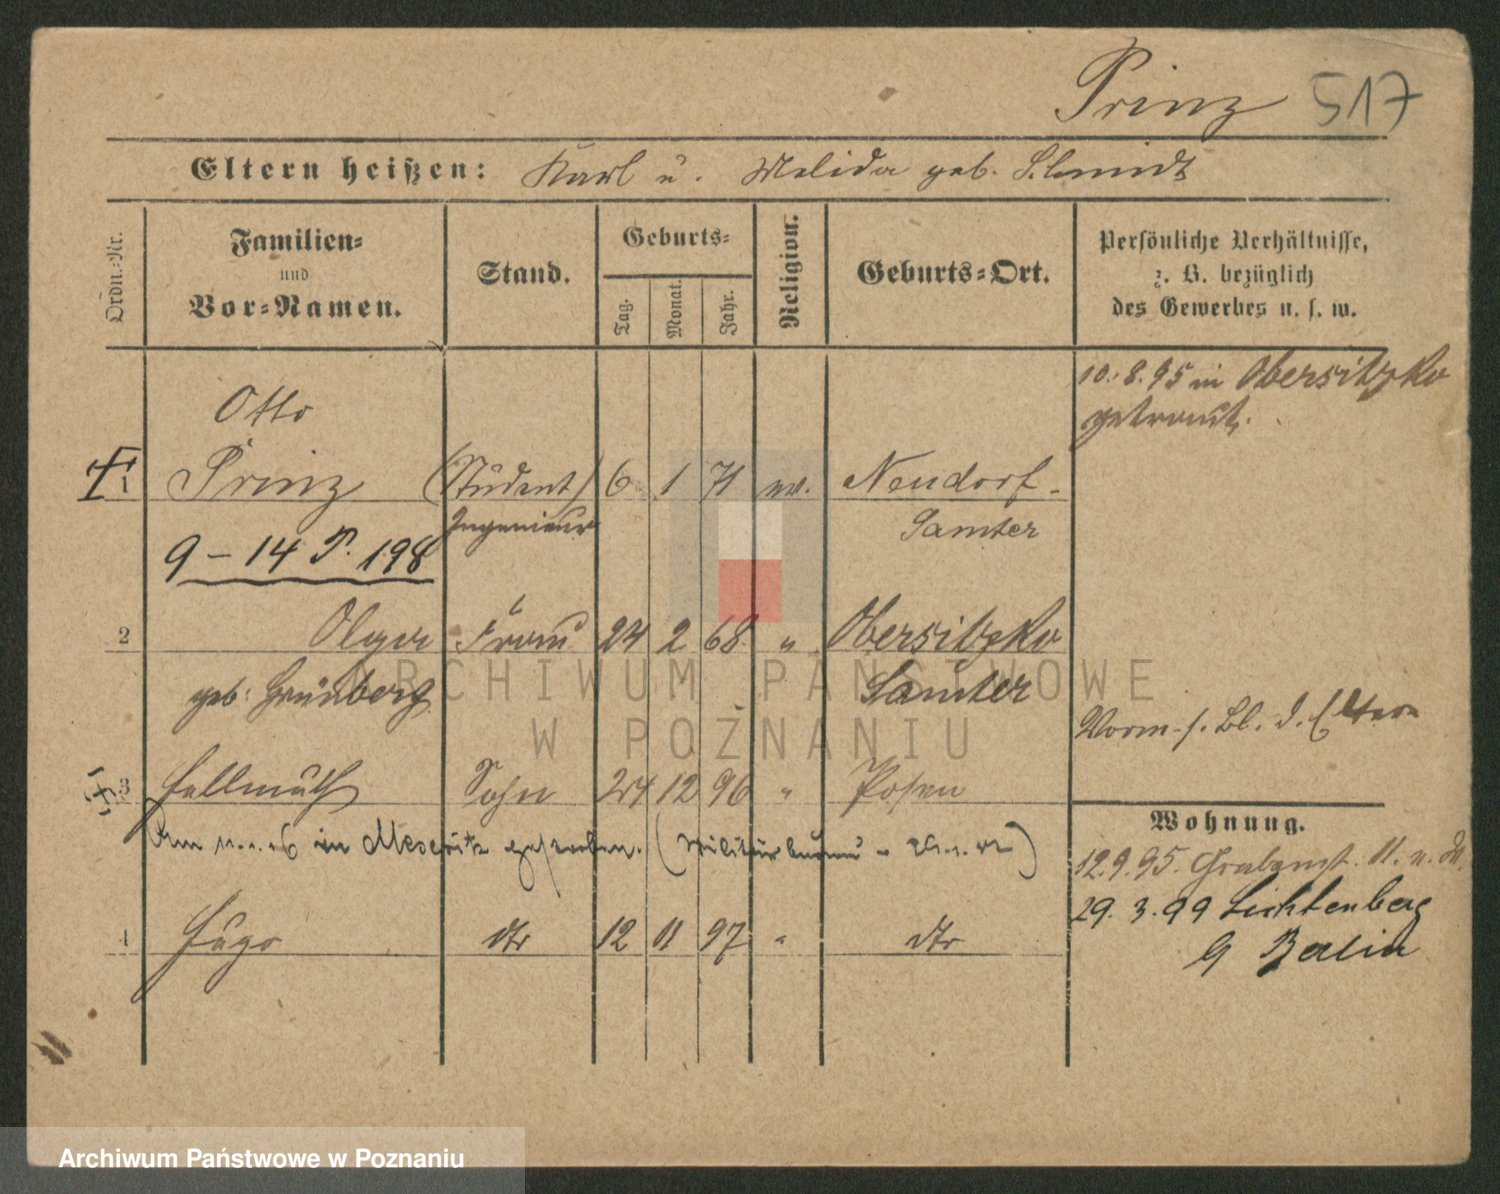 Prinz 517
Eltern heißen: Karl u. Melida geb. Schmidt
Ordn.-Nr.
Familien-
und
Vor-Namen.
Stand.
Geburts-
Tag.
Monat.
Jahr.
Religion.
Geburts-Ort.
Persönliche Verhältnisse,
z. B. bezüglich
des Gewerbes u. s. w.
10. 8. 95 in Obersitzko
getraut.
Otto
1 Prinz (Student) 6 1 71 ev. Neudorf-
Ingenieur Samter
9 – 14 P. 198
2 Olga Frau 24 2 68 " Obersitzko
geb. Grünberg Samter
Vorm. s. Bl. d. Eltern
3 Hellmuth Sohn 24 12 96 " Posen
Am in Meseritz gestorben. (Militärbureau
Wohnung.
12. 9. 95. 11.
29. 3. 99 Lichtenberg
b/ Berlin
4 Hugo dto 12 11 97 " dto
ARCHIWUM PAŃSTWOWE
W POZNANIU
Archiwum Państwowe w Poznaniu